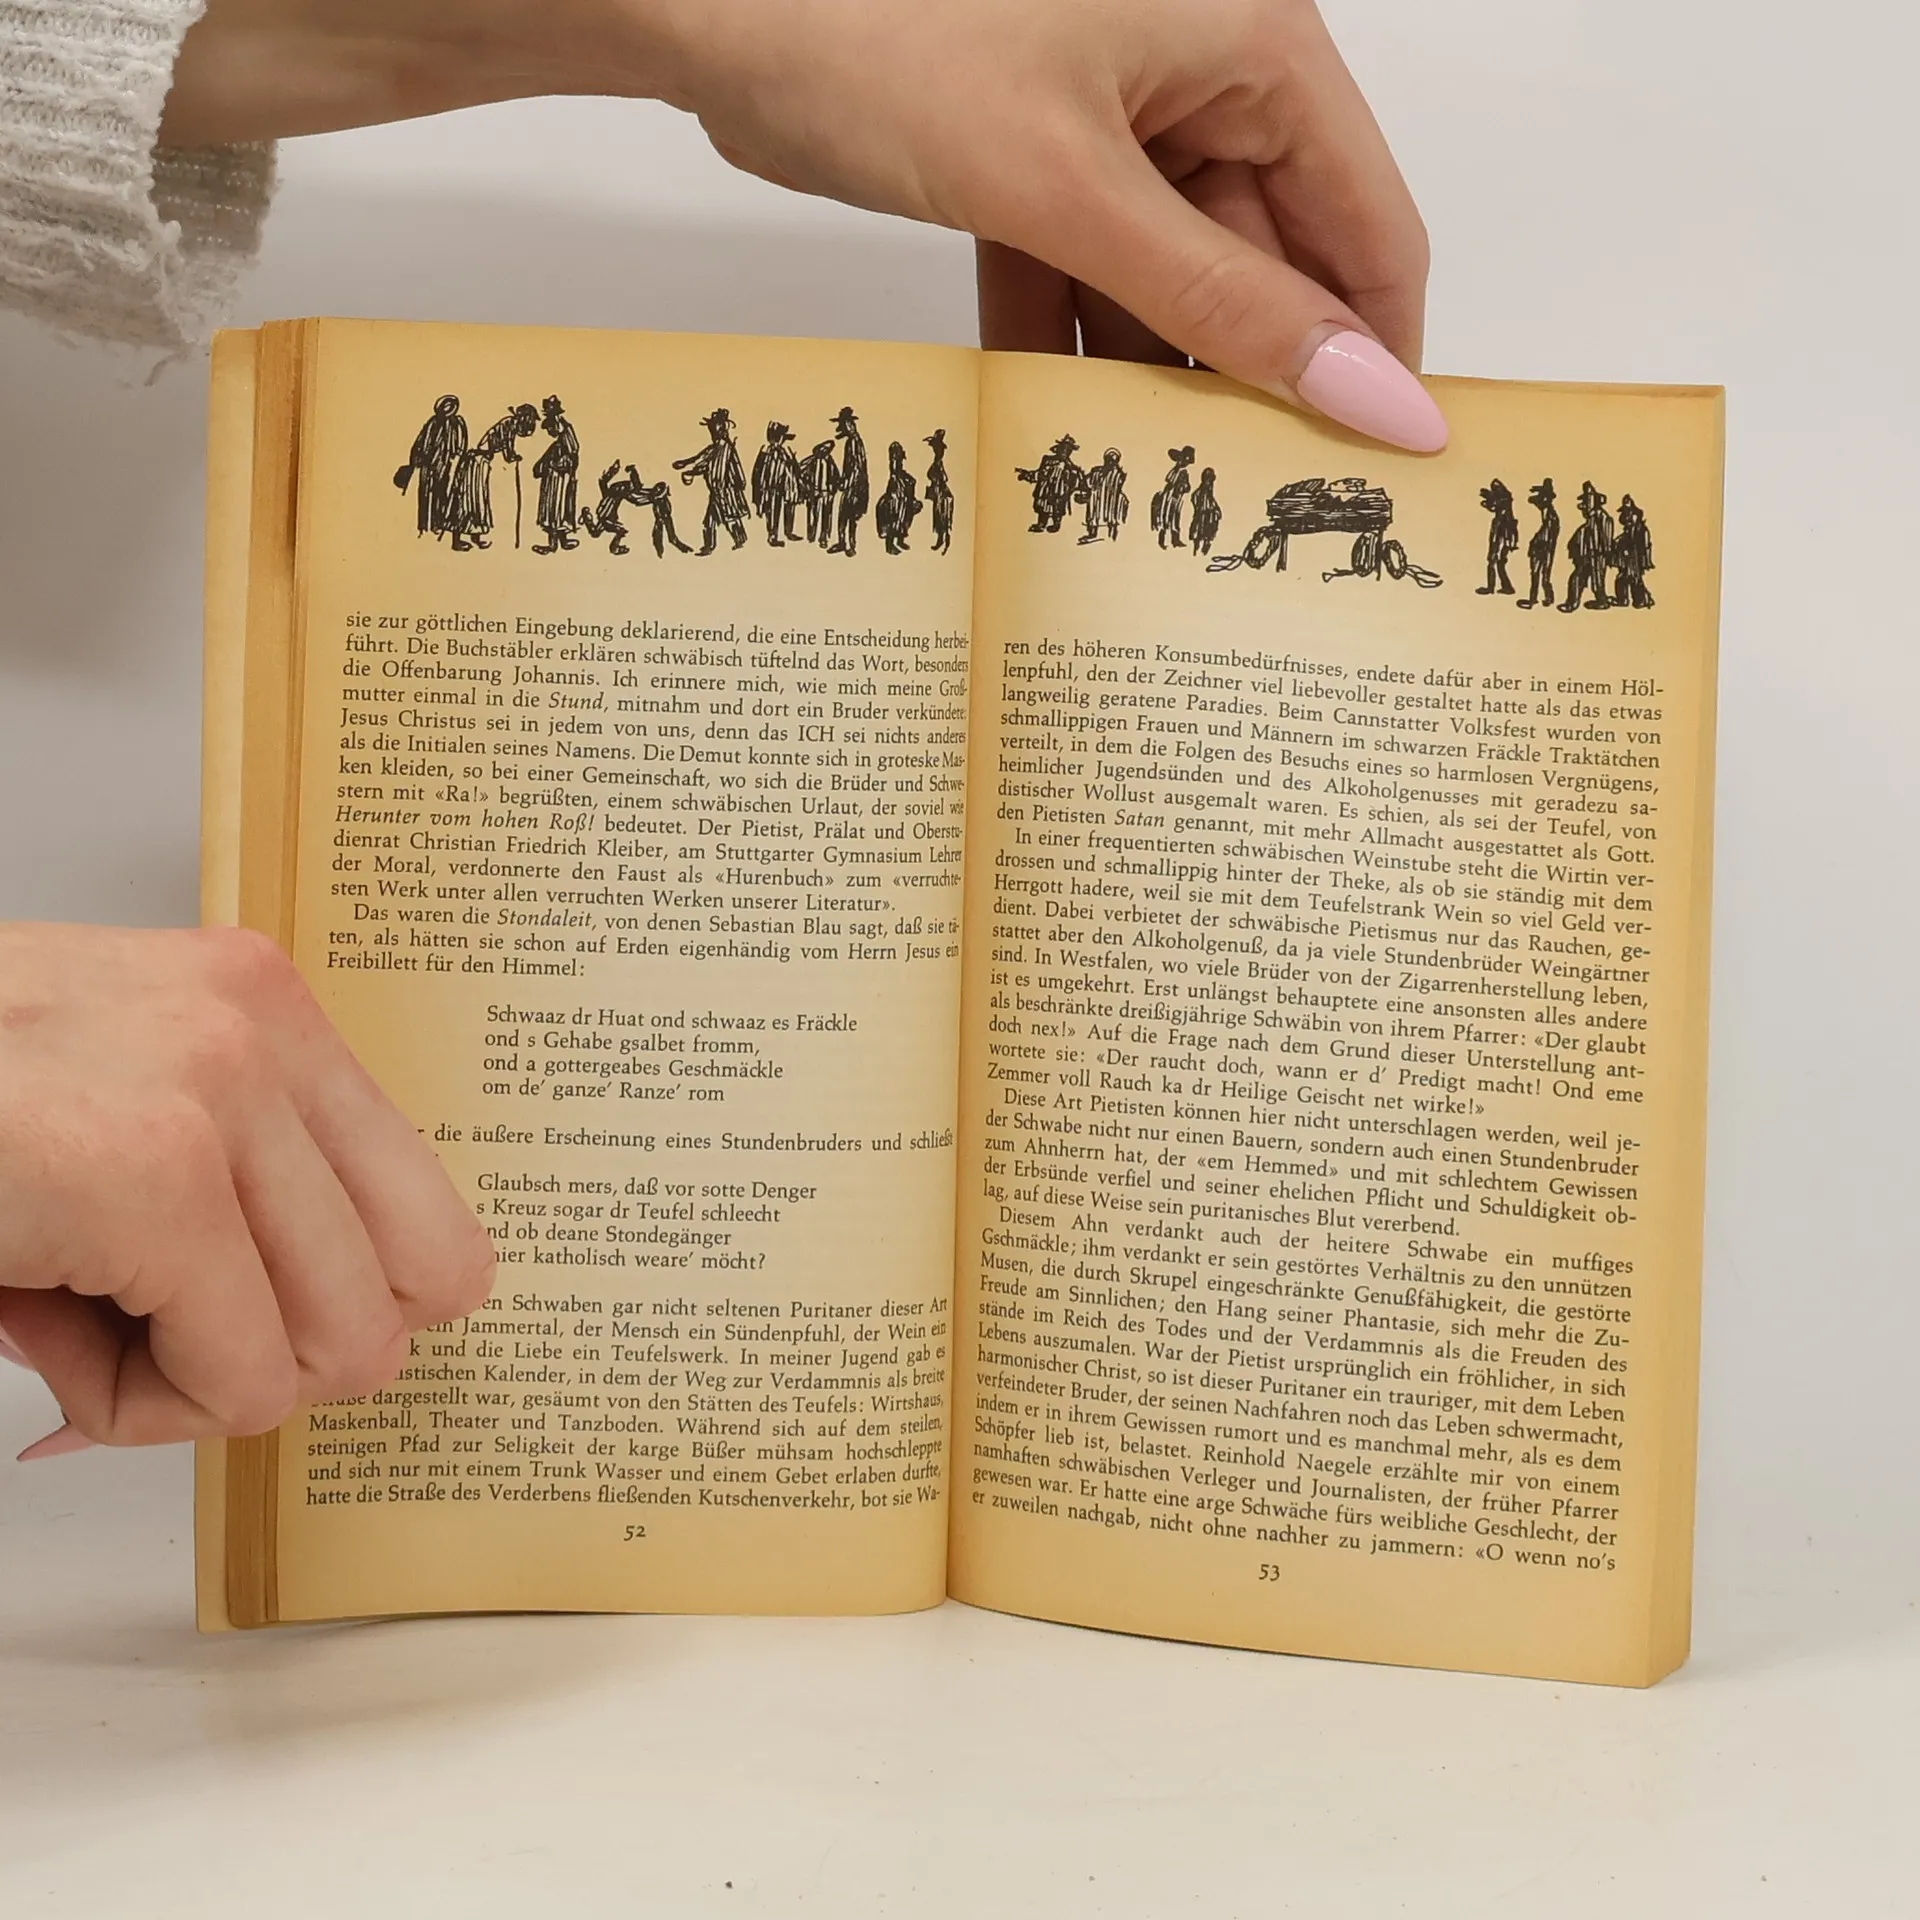 sie zur göttlichen Eingebung deklarierend, die eine Entscheidung herbei-
führt. Die Buchstäbler erklären schwäbisch tüftelnd das Wort, besonders
die Offenbarung Johannis. Ich erinnere mich, wie mich meine Groß-
mutter einmal in die Stund, mitnahm und dort ein Bruder verkündete:
Jesus Christus sei in jedem von uns, denn das ICH sei nichts anderes
als die Initialen seines Namens. Die Demut konnte sich in groteske Mas-
ken kleiden, so bei einer Gemeinschaft, wo sich die Brüder und Schwe-
stern mit «Ra!» begrüßten, einem schwäbischen Urlaut, der soviel wie
Herunter vom hohen Roß! bedeutet. Der Pietist, Prälat und Oberstu-
dienrat Christian Friedrich Kleiber, am Stuttgarter Gymnasium Lehrer
der Moral, verdonnerte den Faust als «Hurenbuch» zum «verruchte-
sten Werk unter allen verruchten Werken unserer Literatur».
Das waren die Stondaleit, von denen Sebastian Blau sagt, daß sie tä-
ten, als hätten sie schon auf Erden eigenhändig vom Herrn Jesus ein
Freibillett für den Himmel:
Schwaaz dr Huat ond schwaaz es Fräckle
ond s Gehabe gsalbet fromm,
ond a gottergeabes Geschmäckle
om de' ganze' Ranze' rom
die äußere Erscheinung eines Stundenbruders und schließt
Glaubsch mers, daß vor sotte Denger
s Kreuz sogar dr Teufel schleecht
ob deane Stondegänger
katholisch weare' möcht?
Schwaben gar nicht seltenen Puritaner dieser Art
Jammertal, der Mensch ein Sündenpfuhl, der Wein ein
und die Liebe ein Teufelswerk. In meiner Jugend gab es
Kalender, in dem der Weg zur Verdammnis als breite
Straße dargestellt war, gesäumt von den Stätten des Teufels: Wirtshaus,
Maskenball, Theater und Tanzboden. Während sich auf dem steilen,
steinigen Pfad zur Seligkeit der karge Büßer mühsam hochschleppte
und sich nur mit einem Trunk Wasser und einem Gebet erlaben durfte,
hatte die Straße des Verderbens fließenden Kutschenverkehr, bot sie Wa-
52
ren des höheren Konsumbedürfnisses, endete dafür aber in einem Höl-
lenpfuhl, den der Zeichner viel liebevoller gestaltet hatte als das etwas
langweilig geratene Paradies. Beim Cannstatter Volksfest wurden von
schmallippigen Frauen und Männern im schwarzen Fräckle Traktätchen
verteilt, in dem die Folgen des Besuchs eines so harmlosen Vergnügens,
heimlicher Jugendsünden und des Alkoholgenusses mit geradezu sa-
distischer Wollust ausgemalt waren. Es schien, als sei der Teufel, von
den Pietisten Satan genannt, mit mehr Allmacht ausgestattet als Gott.
In einer frequentierten schwäbischen Weinstube steht die Wirtin ver-
drossen und schmallippig hinter der Theke, als ob sie ständig mit dem
Herrgott hadere, weil sie mit dem Teufelstrank Wein so viel Geld ver-
dient. Dabei verbietet der schwäbische Pietismus nur das Rauchen, ge-
stattet aber den Alkoholgenuß, da ja viele Stundenbrüder Weingärtner
sind. In Westfalen, wo viele Brüder von der Zigarrenherstellung leben,
ist es umgekehrt. Erst unlängst behauptete eine ansonsten alles andere
als beschränkte dreißigjährige Schwäbin von ihrem Pfarrer: «Der glaubt
doch nex!» Auf die Frage nach dem Grund dieser Unterstellung ant-
wortete sie: «Der raucht doch, wann er d' Predigt macht! Ond eme
Zemmer voll Rauch ka dr Heilige Geischt net wirke!»
Diese Art Pietisten können hier nicht unterschlagen werden, weil je-
der Schwabe nicht nur einen Bauern, sondern auch einen Stundenbruder
zum Ahnherrn hat, der «em Hemmed» und mit schlechtem Gewissen
der Erbsünde verfiel und seiner ehelichen Pflicht und Schuldigkeit ob-
lag, auf diese Weise sein puritanisches Blut vererbend.
Diesem Ahn verdankt auch der heitere Schwabe ein muffiges
Gschmäckle; ihm verdankt er sein gestörtes Verhältnis zu den unnützen
Musen, die durch Skrupel eingeschränkte Genußfähigkeit, die gestörte
Freude am Sinnlichen; den Hang seiner Phantasie, sich mehr die Zu-
stände im Reich des Todes und der Verdammnis als die Freuden des
Lebens auszumalen. War der Pietist ursprünglich ein fröhlicher, in sich
harmonischer Christ, so ist dieser Puritaner ein trauriger, mit dem Leben
verfeindeter Bruder, der seinen Nachfahren noch das Leben schwermacht,
indem er in ihrem Gewissen rumort und es manchmal mehr, als es dem
Schöpfer lieb ist, belastet. Reinhold Naegele erzählte mir von einem
namhaften schwäbischen Verleger und Journalisten, der früher Pfarrer
gewesen war. Er hatte eine arge Schwäche fürs weibliche Geschlecht, der
er zuweilen nachgab, nicht ohne nachher zu jammern: «O wenn no's
53